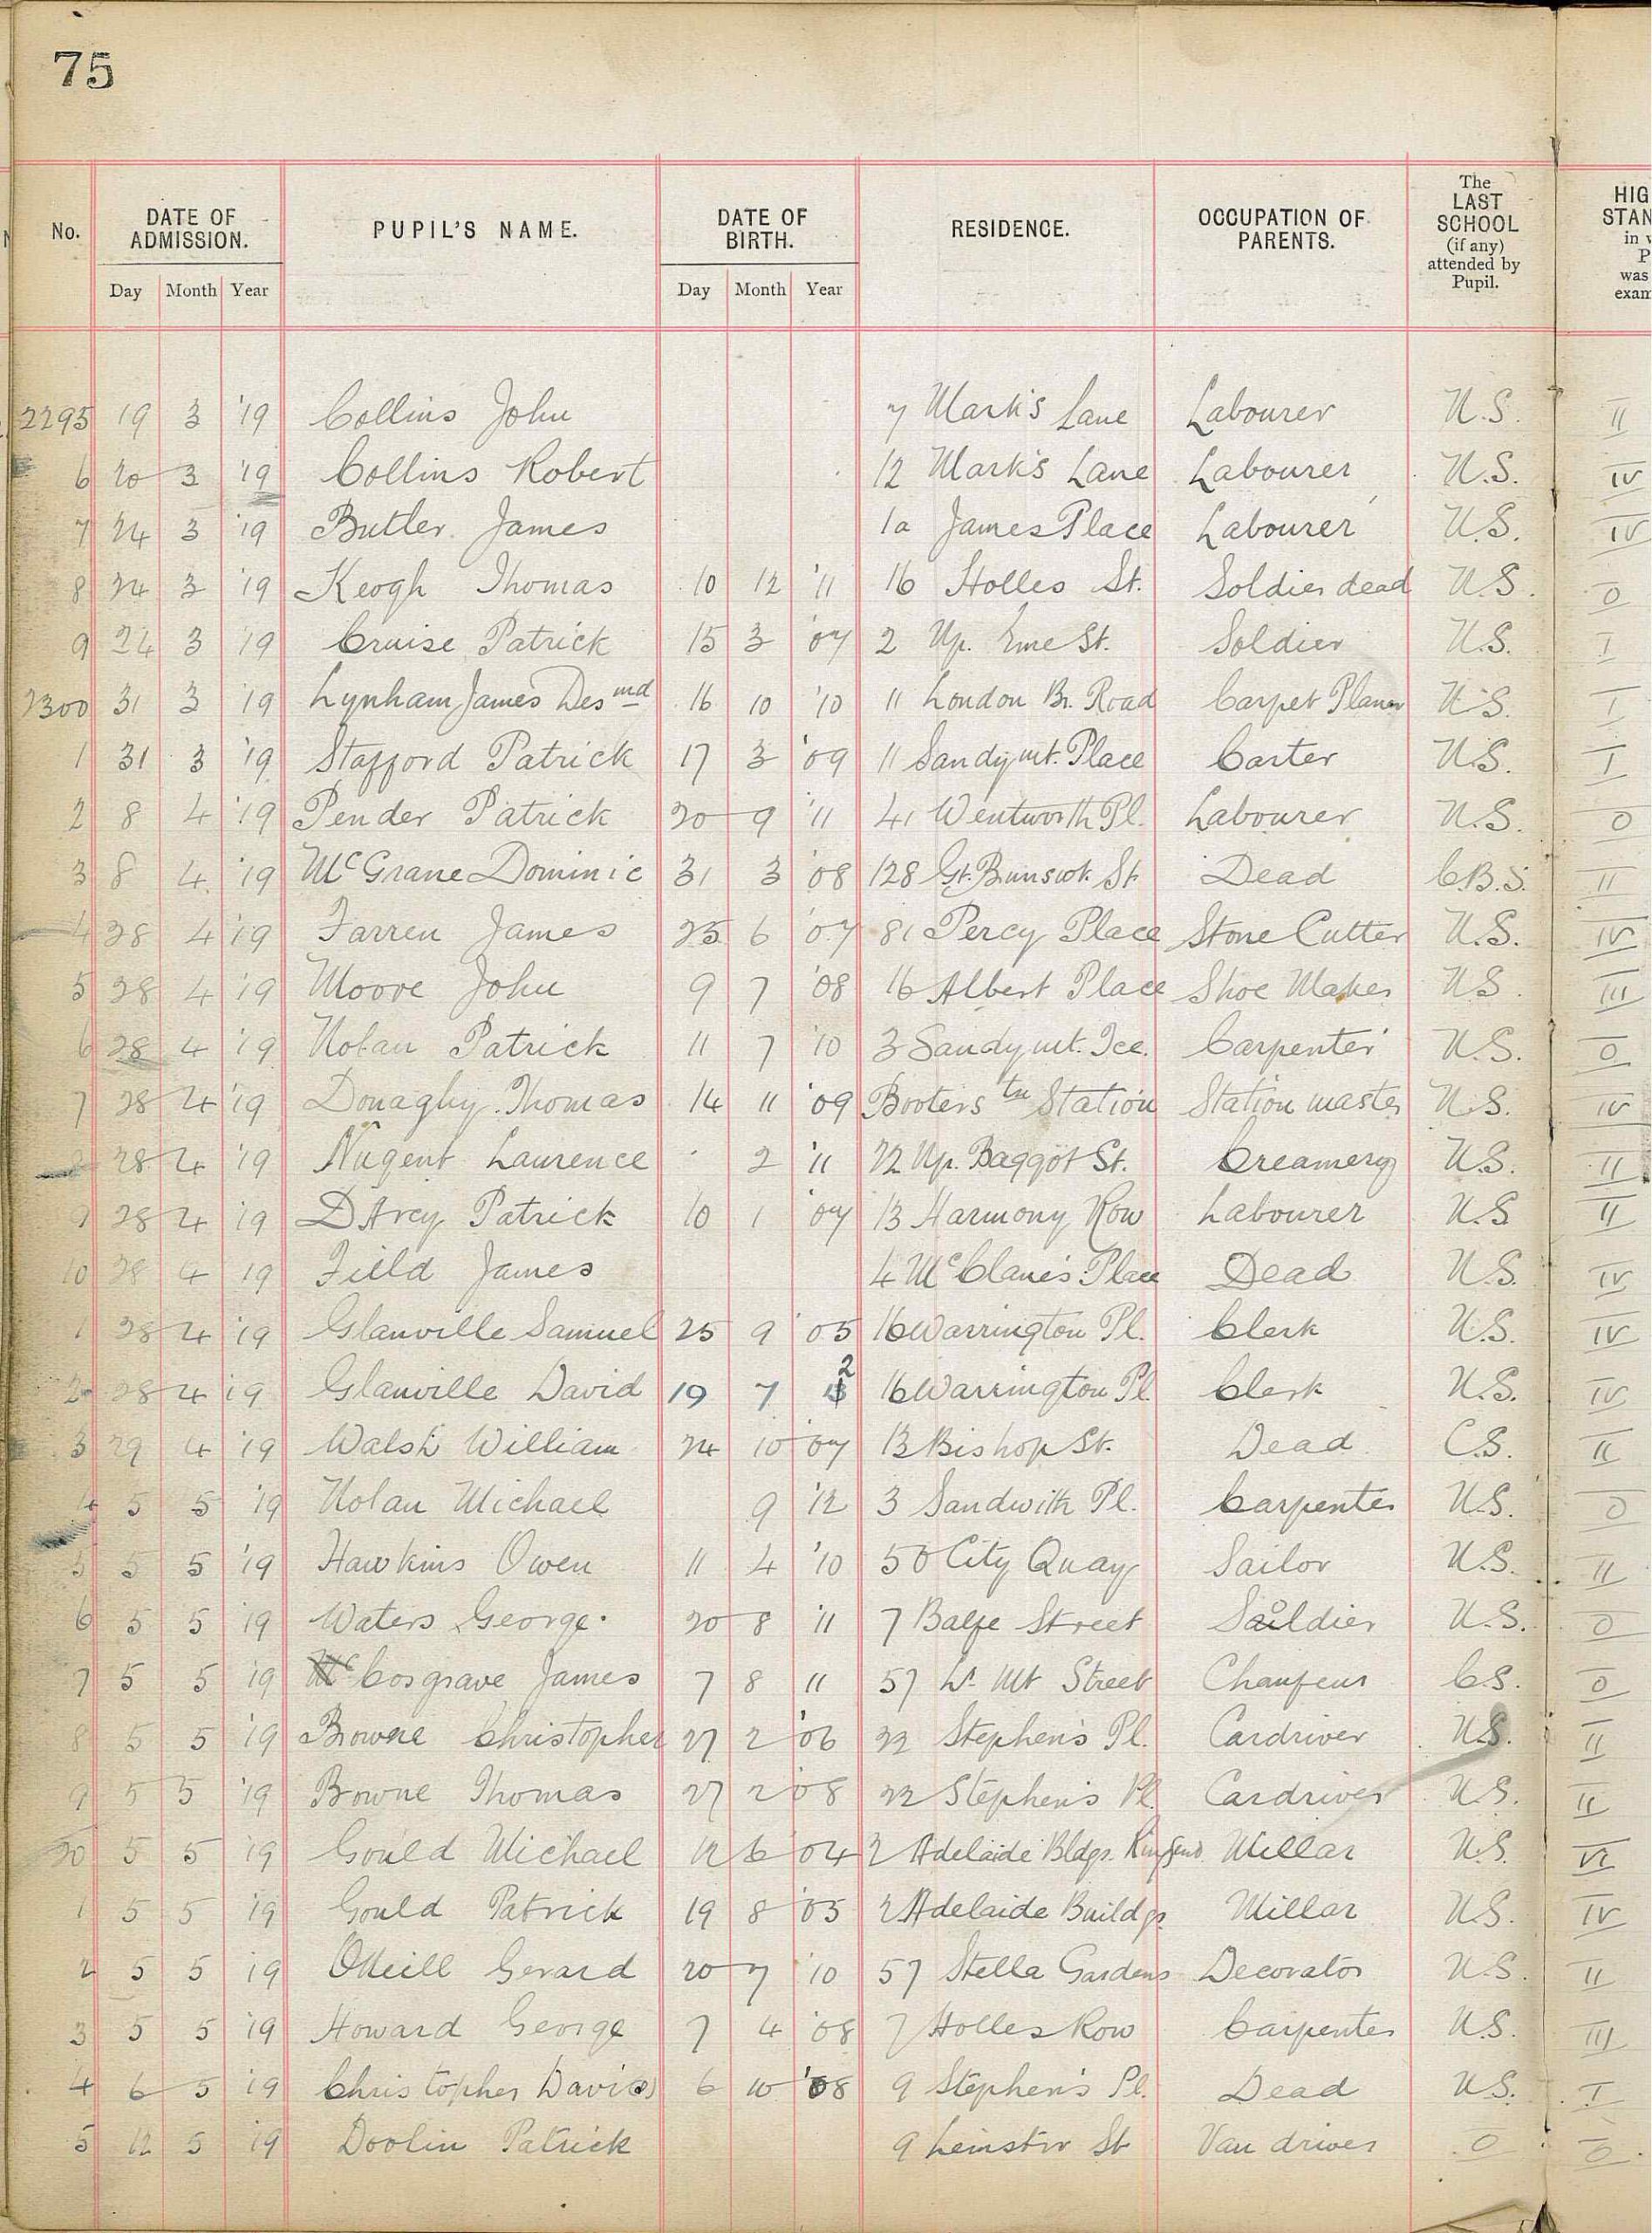 75
No. DATE OF ADMISSION. PUPIL'S NAME. DATE OF BIRTH. RESIDENCE. OCCUPATION OF PARENTS. The LAST SCHOOL (if any) attended by Pupil. HIG STAN in P was exam
Day Month Year Day Month Year
2295 19 3 '19 Collins John 7 Mark's Lane Labourer N.S. II
6 20 3 '19 Collins Robert 12 Mark's Lane Labourer N.S. IV
7 24 3 '19 Butler James 1a James Place Labourer N.S. IV
8 24 3 '19 Keogh Thomas 10 12 '11 16 Holles St. Soldier dead N.S. 0
9 24 3 '19 Cruise Patrick 15 3 '07 2 Up. Erne St. Soldier N.S. I
2300 31 3 '19 Lynham James Desmd 16 10 '10 11 London Br. Road Carpet Planer N.S. I
1 31 3 '19 Stafford Patrick 17 3 '09 11 Sandymt. Place Carter N.S. I
2 8 4 '19 Pender Patrick 20 9 '11 41 Wentworth Pl. Labourer N.S. 0
3 8 4 '19 McGrane Dominic 31 3 '08 128 Gt. Brunswk. St. Dead C.B.S. II
4 28 4 '19 Farren James 25 6 '07 81 Percy Place Stone Cutter N.S. IV
5 28 4 '19 Moore John 9 7 '08 16 Albert Place Shoe Maker N.S. III
6 28 4 '19 Nolan Patrick 11 7 '10 3 Sandymt. Tce. Carpenter N.S. 0
7 28 4 '19 Donaghy Thomas 14 11 '09 Booterstn Station Station master N.S. IV
28 4 '19 Nugent Laurence 2 '11 22 Up. Baggot St. Creamery N.S. II
9 28 4 '19 DArcy Patrick 10 1 '07 13 Harmony Row Labourer N.S II
10 28 4 '19 Field James 4 McClane's Place Dead N.S. IV
1 28 4 '19 Glanville Samuel 25 9 '05 16 Warrington Pl. Clerk N.S. IV
2 28 4 '19 Glanville David 19 7 2 16 Warrington Pl. Clerk N.S. IV
3 29 4 '19 Walsh William 24 10 '07 13 Bishop St. Dead C.S. II
4 5 5 '19 Nolan Michael 9 '12 3 Sandwith Pl. Carpenter N.S. 0
5 5 5 '19 Hawkins Owen 11 4 '10 50 City Quay Sailor N.S. II
6 5 5 '19 Waters George 20 8 '11 7 Balfe Street Soldier N.S. 0
7 5 5 '19 Cosgrave James 7 8 11 57 Lr. Mt Street Chaufeur C.S. 0
8 5 5 '19 Browne Christopher 27 2 '06 22 Stephen's Pl. Cardriver N.S. II
9 5 5 '19 Browne Thomas 27 2 '08 22 Stephen's Pl. Cardriver N.S. II
20 5 5 '19 Gould Michael 12 6 '04 2 Adelaide Bldgs. Ringsend Millar N.S. VI
1 5 5 '19 Gould Patrick 19 8 '05 2 Adelaide Buildgs Millar N.S. IV
2 5 5 '19 ONeill Gerard 20 7 '10 57 Stella Gardens Decorator N.S. II
3 5 5 '19 Howard George 7 4 '08 7 Holles Row Carpenter N.S. III
4 6 5 '19 Christopher Davies 6 10 '08 9 Stephen's Pl. Dead N.S. I
5 12 5 '19 Doolin Patrick 9 Leinster St Van driver 0 0